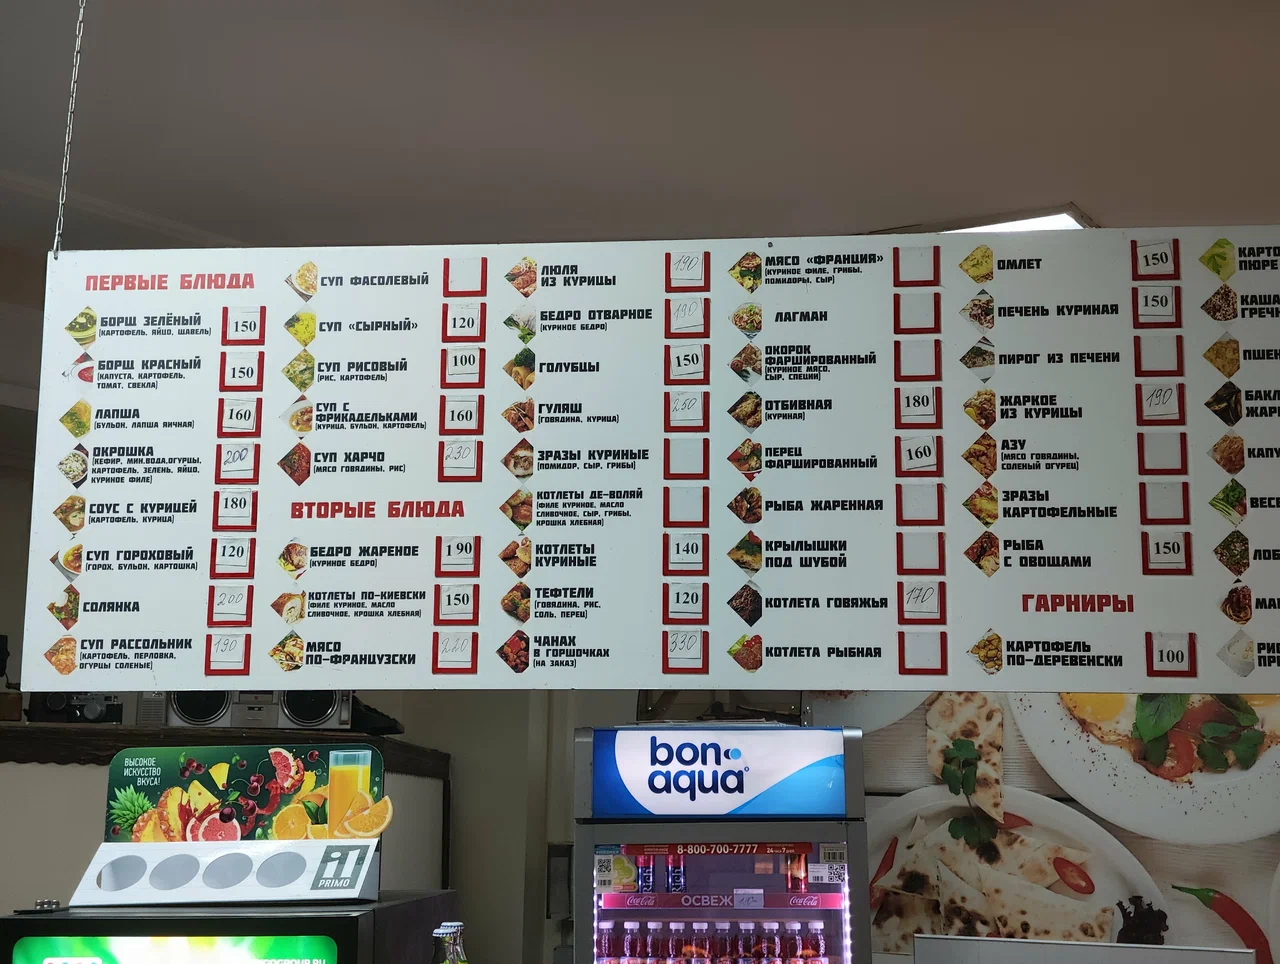 ПЕРВЫЕ БЛЮДА
БОРЩ ЗЕЛЁНЫЙ 150
(КАРТОФЕЛЬ, ЯЙЦО, ЩАВЕЛЬ)
БОРЩ КРАСНЫЙ 150
(КАПУСТА, КАРТОФЕЛЬ,
ТОМАТ, СВЕКЛА)
ЛАПША 160
(БУЛЬОН, ЛАПША ЯИЧНАЯ)
ОКРОШКА 200
(КЕФИР, МИН.ВОДА,ОГУРЦЫ,
КАРТОФЕЛЬ, ЗЕЛЕНЬ, ЯЙЦО,
КУРИНОЕ ФИЛЕ)
СОУС С КУРИЦЕЙ 180
(КАРТОФЕЛЬ, КУРИЦА)
СУП ГОРОХОВЫЙ 120
(ГОРОХ, БУЛЬОН, КАРТОШКА)
СОЛЯНКА 200
СУП РАССОЛЬНИК 190
(КАРТОФЕЛЬ, ПЕРЛОВКА,
ОГУРЦЫ СОЛЕНЫЕ)
СУП ФАСОЛЕВЫЙ
СУП «СЫРНЫЙ» 120
СУП РИСОВЫЙ 100
(РИС, КАРТОФЕЛЬ)
СУП С
ФРИКАДЕЛЬКАМИ 160
(КУРИЦА, БУЛЬОН, КАРТОФЕЛЬ)
СУП ХАРЧО 230
(МЯСО ГОВЯДИНЫ, РИС)
ВТОРЫЕ БЛЮДА
БЕДРО ЖАРЕНОЕ 190
(КУРИНОЕ БЕДРО)
КОТЛЕТЫ ПО-КИЕВСКИ 150
(ФИЛЕ КУРИНОЕ, МАСЛО
СЛИВОЧНОЕ, КРОШКА ХЛЕБНАЯ)
МЯСО
ПО-ФРАНЦУЗСКИ 220
ЛЮЛЯ
ИЗ КУРИЦЫ 190
БЕДРО ОТВАРНОЕ 190
(КУРИНОЕ БЕДРО)
ГОЛУБЦЫ 150
ГУЛЯШ 250
(ГОВЯДИНА, КУРИЦА)
ЗРАЗЫ КУРИНЫЕ
(ПОМИДОР, СЫР, ГРИБЫ)
КОТЛЕТЫ ДЕ-ВОЛЯЙ
(ФИЛЕ КУРИНОЕ, МАСЛО
СЛИВОЧНОЕ, СЫР, ГРИБЫ,
КРОШКА ХЛЕБНАЯ)
КОТЛЕТЫ
КУРИНЫЕ 140
ТЕФТЕЛИ 120
(ГОВЯДИНА, РИС,
СОЛЬ, ПЕРЕЦ)
ЧАНАХ
В ГОРШОЧКАХ 330
(НА ЗАКАЗ)
МЯСО «ФРАНЦИЯ»
(КУРИНОЕ ФИЛЕ, ГРИБЫ,
ПОМИДОРЫ, СЫР)
ЛАГМАН
ОКОРОК
ФАРШИРОВАННЫЙ
(КУРИНОЕ МЯСО,
СЫР, СПЕЦИИ)
ОТБИВНАЯ 180
(КУРИНАЯ)
ПЕРЕЦ
ФАРШИРОВАННЫЙ 160
РЫБА ЖАРЕННАЯ
КРЫЛЫШКИ
ПОД ШУБОЙ
КОТЛЕТА ГОВЯЖЬЯ 170
КОТЛЕТА РЫБНАЯ
ОМЛЕТ 150
ПЕЧЕНЬ КУРИНАЯ 150
ПИРОГ ИЗ ПЕЧЕНИ
ЖАРКОЕ
ИЗ КУРИЦЫ 190
АЗУ
(МЯСО ГОВЯДИНЫ,
СОЛЕНЫЙ ОГУРЕЦ)
ЗРАЗЫ
КАРТОФЕЛЬНЫЕ
РЫБА
С ОВОЩАМИ 150
ГАРНИРЫ
КАРТОФЕЛЬ
ПО-ДЕРЕВЕНСКИ 100
КАРТО
ПЮРЕ
КАША
ГРЕЧН
ПШЕН
БАКЛ
ЖАР
КАПУ
ВЕС
ЛОБ
МАК
РИС
ПР
ВЫСОКОЕ
ИСКУССТВО
ВКУСА!
PRIMO
bon
aqua
8-800-700-7777 24 часа 7 дней
Rich Rich
Coca-Cola ОСВЕЖ Coca-Cola